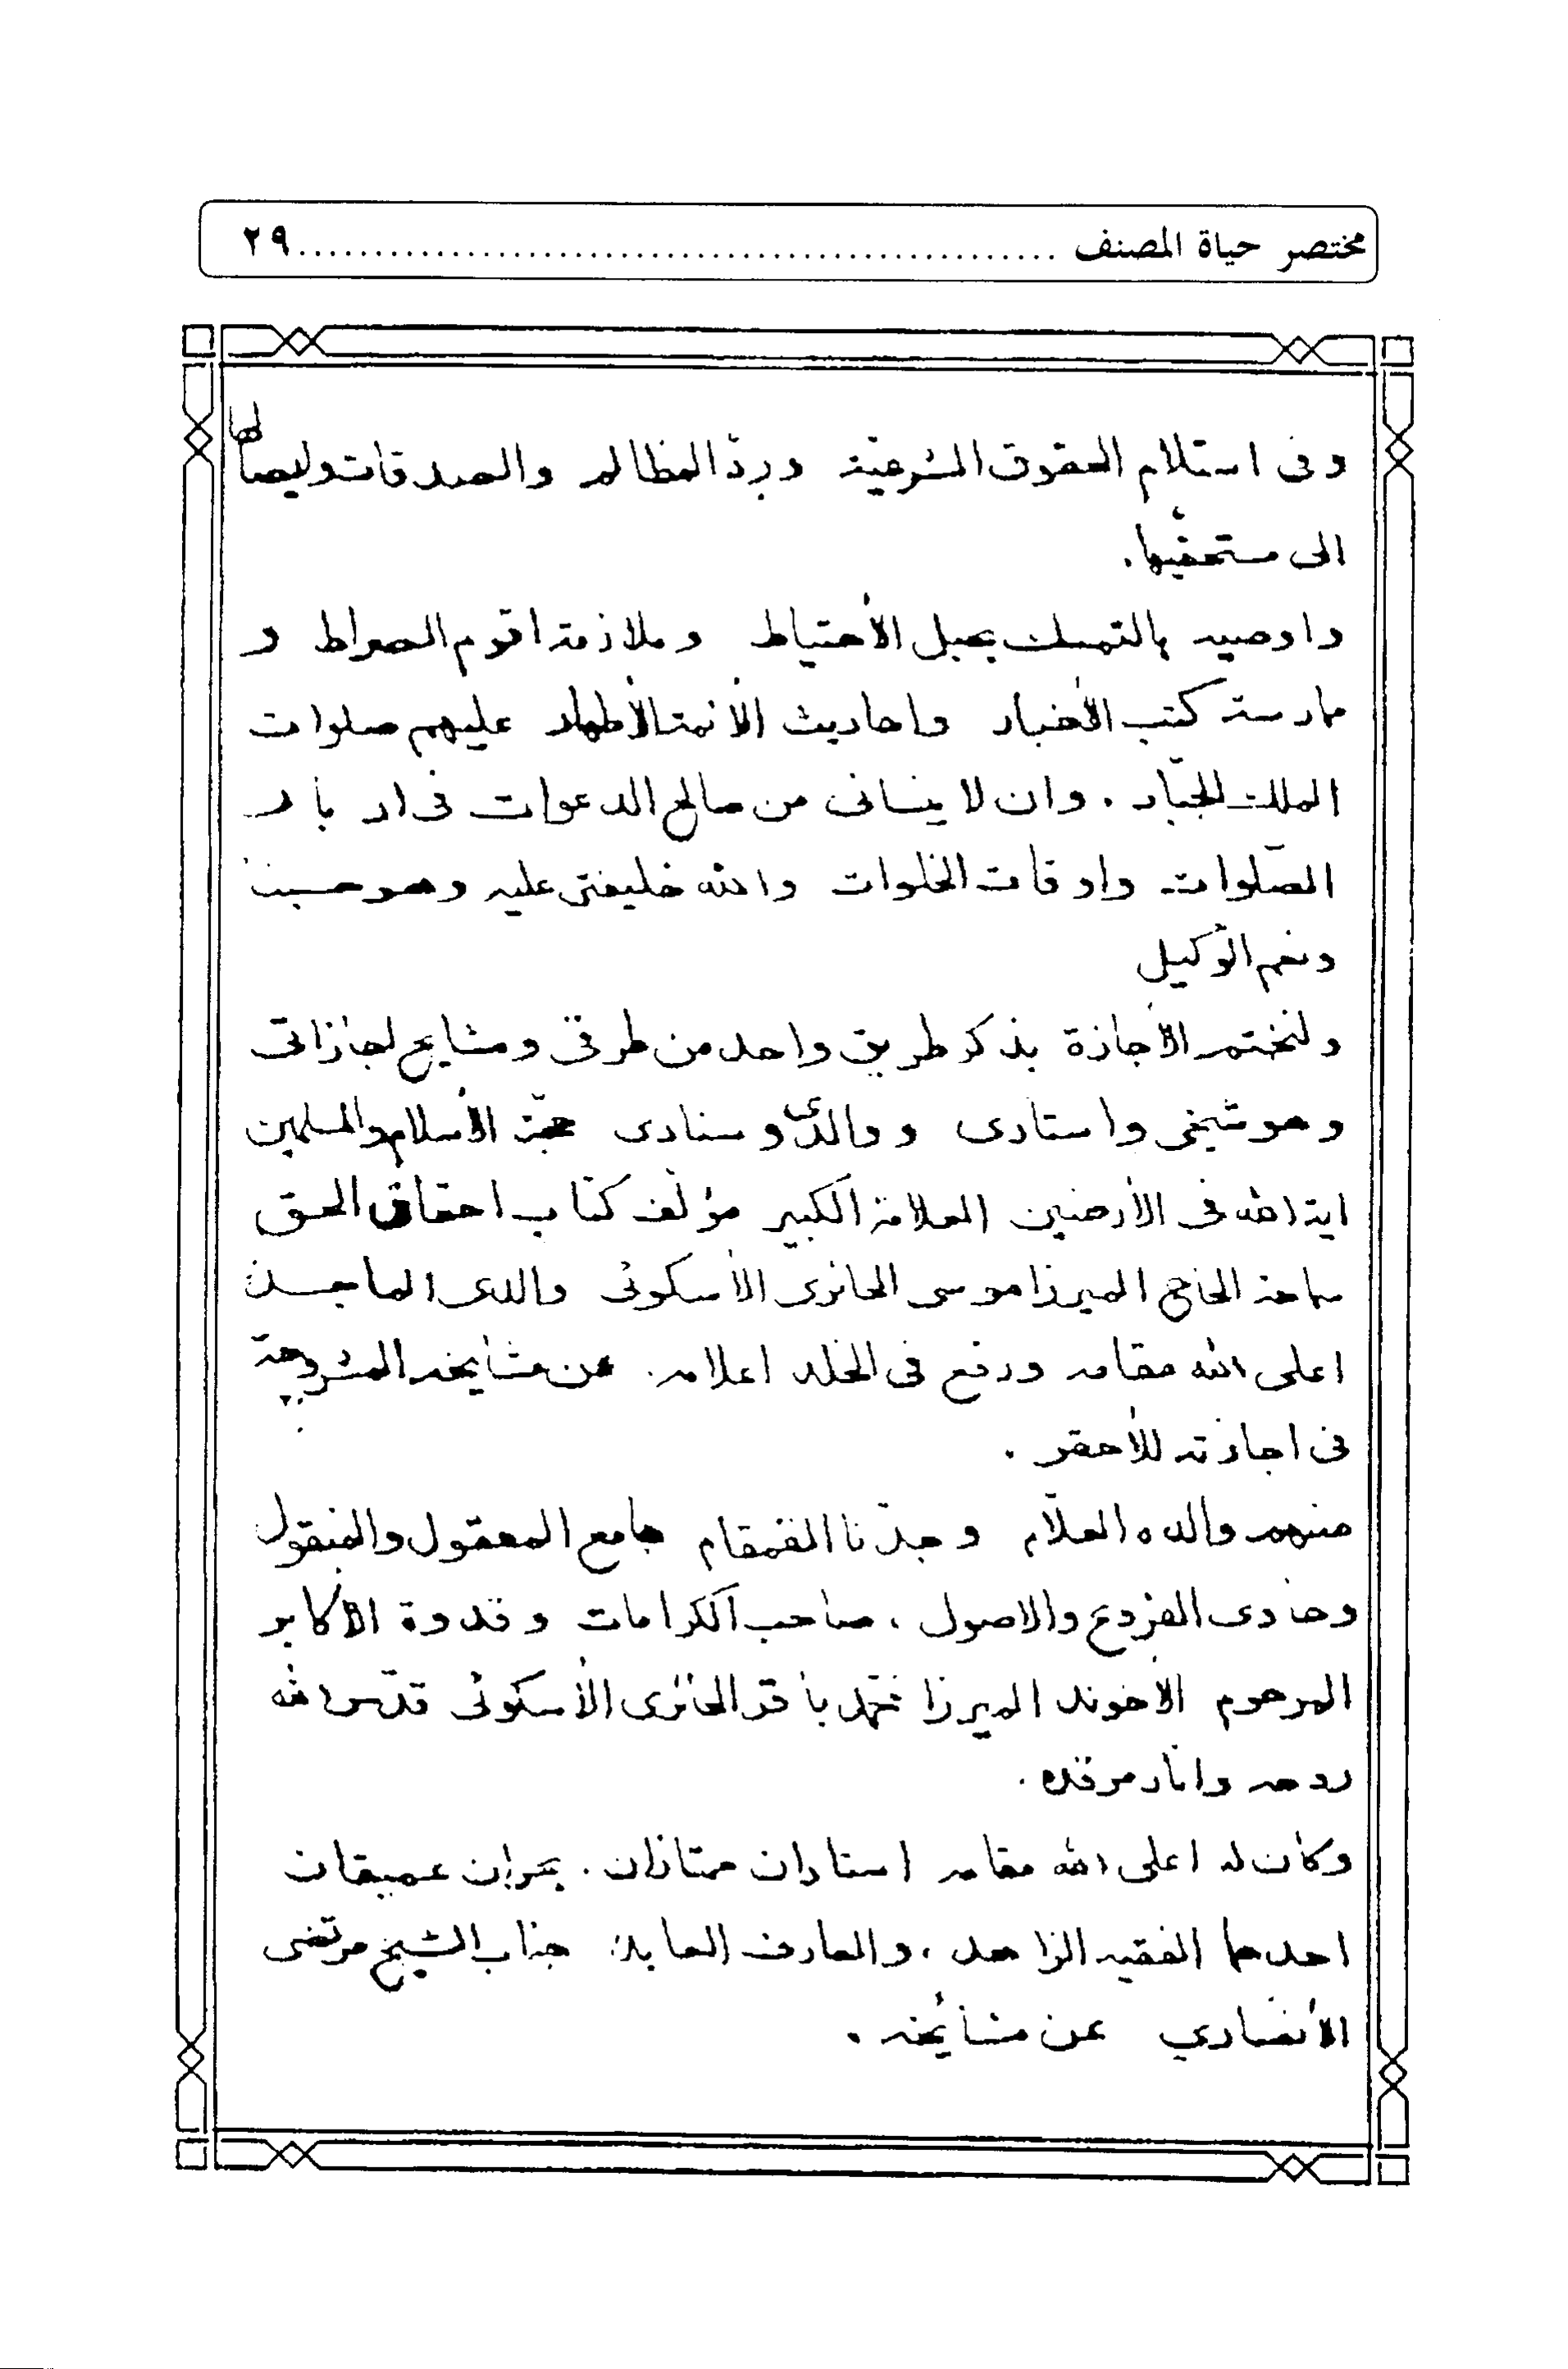 مختصر حياة المصنف ........................................................ ٢٩
وفى استلام الحقوق الشرعيّة وردّ المظالم والصدقات وليصالها
الى مستحقّيها.
واوصيه بالتمسك بحبل الأحتياط وملازمة اقوم الصراط و
مارسة كتب الأخبار واحاديث الأئمة الأطهار عليهم صلوات
الملك الجبّار. وان لا ينسانى من صالح الدعوات فى ادبار
الصّلوات واوقات الخلوات والله خليفتى عليه وهو حسبنا
ونعم الوكيل
ولنختم الأجازة بذكر طريق واحد من طرقى ومشايخ اجازاتى
وهو شيخى واستادى ووالدى وسنادى حجّة الأسلام والمسلمين
اية الله فى الأرضين العلامة الكبير مؤلف كتاب احقاق الحق
سماحة الحاج الميرزا موسى الحائرى الأسكوئى والدى الماجد
اعلى الله مقامه ورفع فى الخلد اعلامه. عن مشايخه المشروحة
فى اجازته للأحقر.
منهم والده العلّام وجدّنا القمقام جامع المعقول والمنقول
وحاوى الفروع والاصول، صاحب الكرامات وقدوة الأكابر
المرحوم الأخوند الميرزا محمّد باقر الحائرى الأسكوئى قدّس الله
روحه وانار مرقده.
وكان له اعلى الله مقامه استادان ممتازان. بحران عميقان
احدهما الفقيه الزاهد، والعارف العابد: جناب الشيخ مرتضى
الأنصاري عن مشائخه.